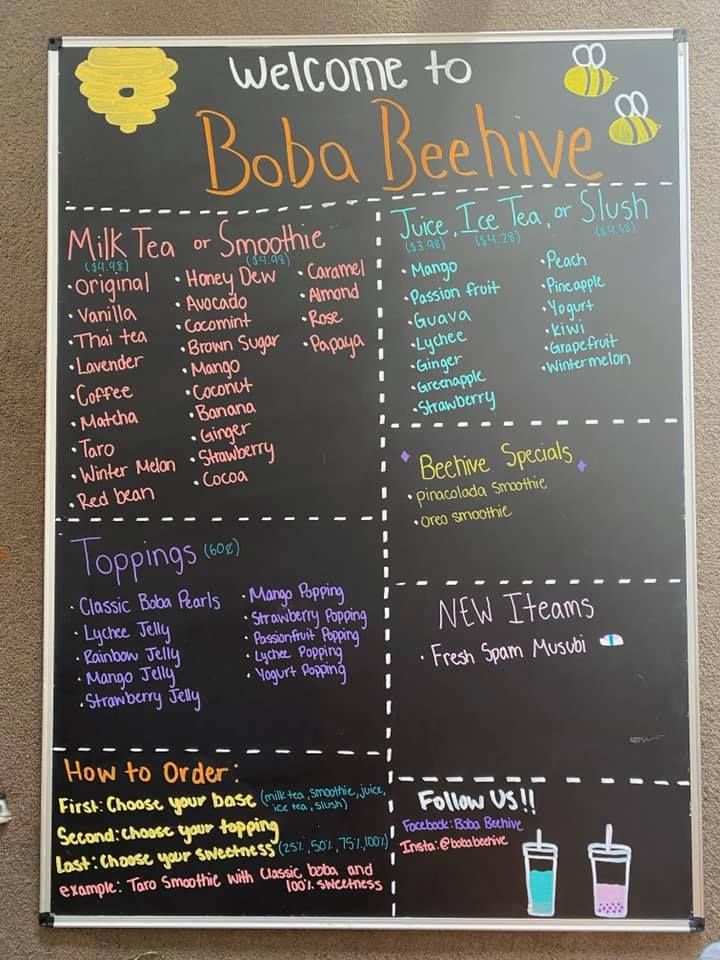 Welcome to
Boba Beehive
Milk Tea or Smoothie
($4.48) ($4.98)
• Original
• Vanilla
• Thai tea
• Lavender
• Coffee
• Matcha
• Taro
• Winter Melon
• Red bean
• Honey Dew
• Avocado
• Cocomint
• Brown Sugar
• Mango
• Coconut
• Banana
• Ginger
• Strawberry
• Cocoa
• Caramel
• Almond
• Rose
• Papaya
Juice, Ice Tea, or Slush
($3.98) ($4.28) ($4.68)
• Mango
• Passion fruit
• Guava
• Lychee
• Ginger
• Greenapple
• Strawberry
• Peach
• Pineapple
• Yogurt
• Kiwi
• Grapefruit
• Wintermelon
Beehive Specials
• Pinacolada smoothie
• Oreo smoothie
Toppings (60¢)
• Classic Boba Pearls
• Lychee Jelly
• Rainbow Jelly
• Mango Jelly
• Strawberry Jelly
• Mango Popping
• Strawberry Popping
• Passionfruit Popping
• Lychee Popping
• Yogurt Popping
NEW Iteams
• Fresh Spam Musubi
How to Order:
First: Choose your base (milk tea, smoothie, juice,
ice tea, slush)
Second: choose your topping
Last: Choose your sweetness (25%, 50%, 75%, 100%)
example: Taro Smoothie with Classic boba and
100% sweetness
Follow Us!!
Facebook: Boba Beehive
Insta: @bobabeehive